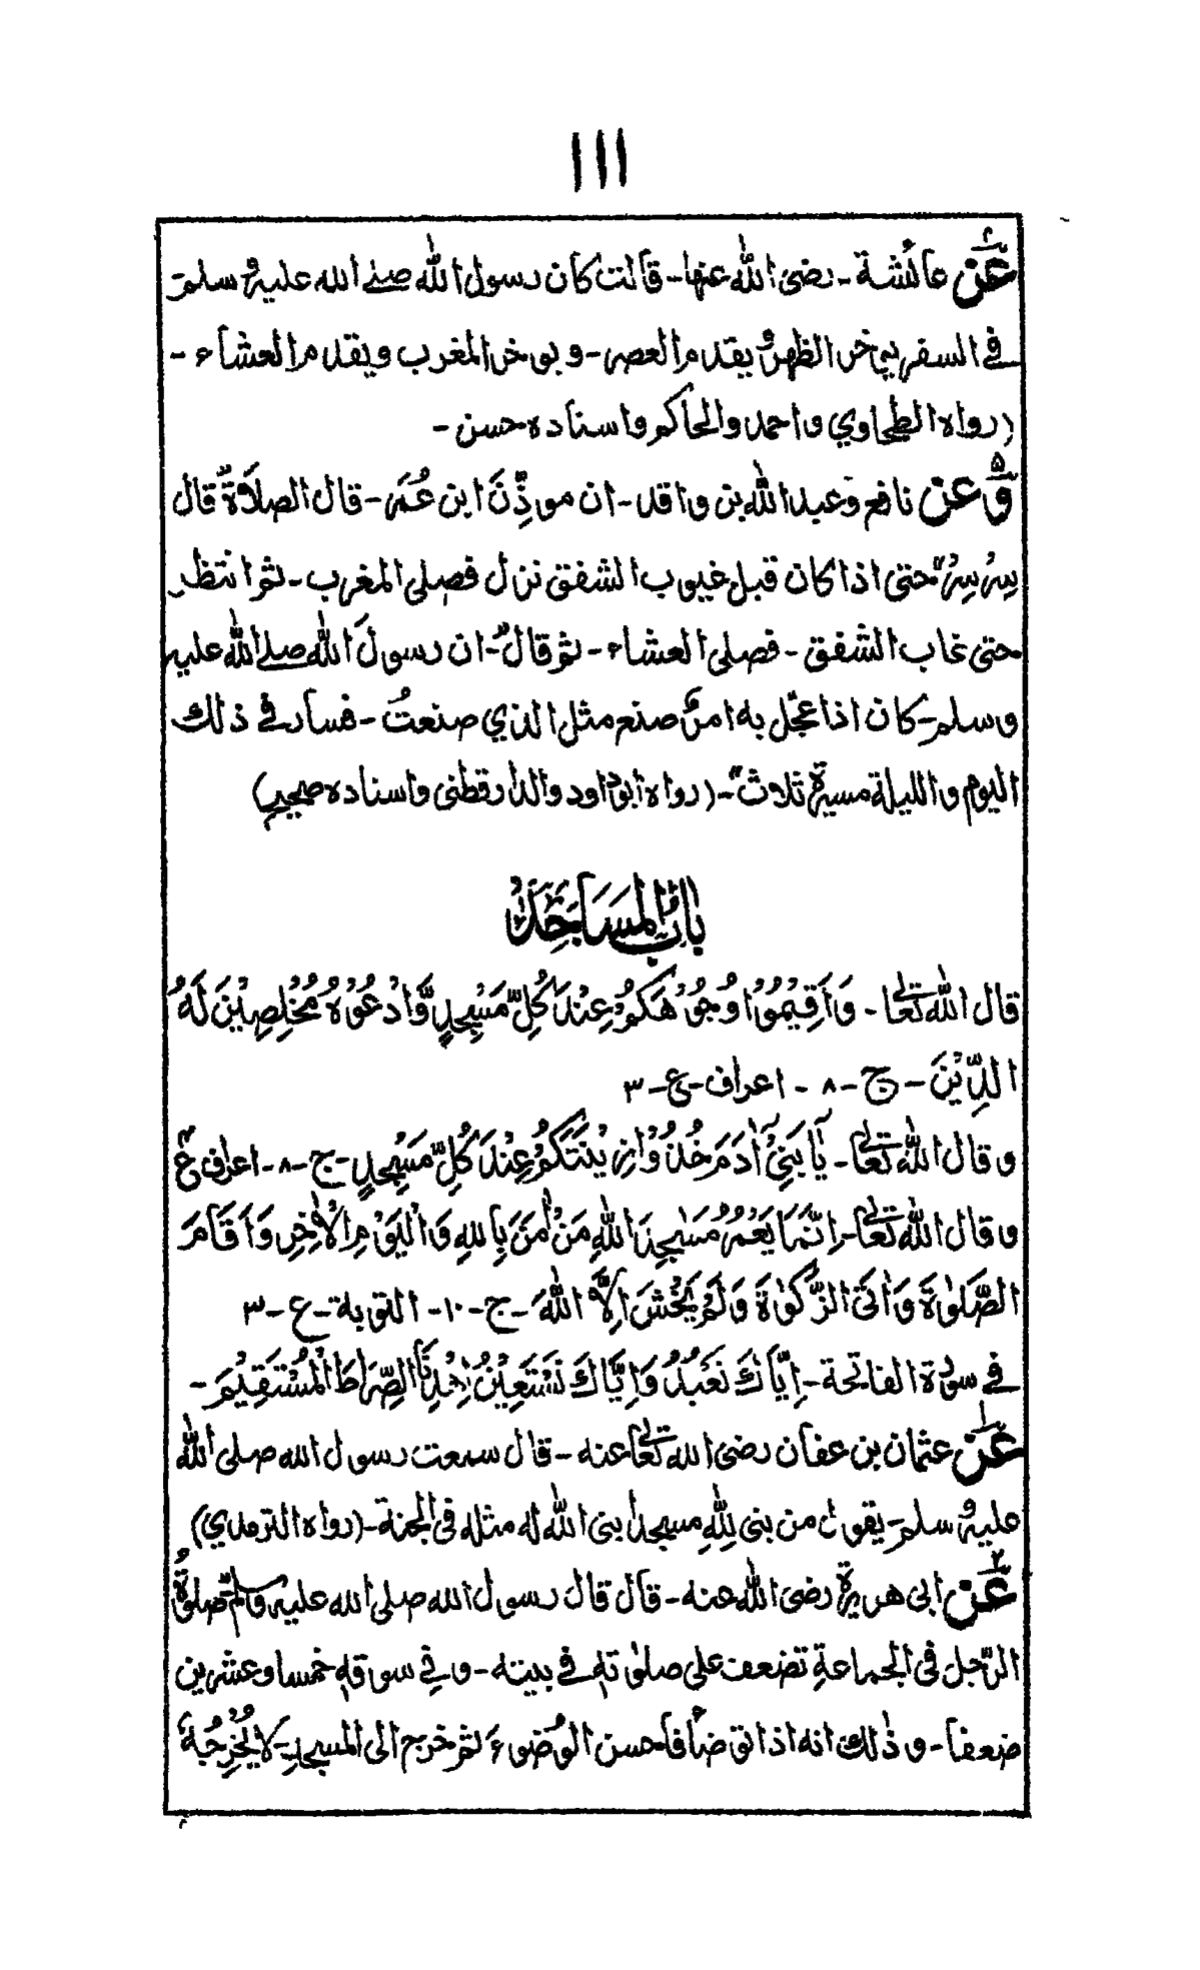 ١١١
عَن٤ عائشة - رضی الله عنها - قالت كان رسول الله صلے الله علیہ وسلم
فی السفر یؤخر الظهر ویقدم العصر - ویؤخر المغرب ویقدم العشاء -
(رواه الطحاوي واحمد والحاكم واسناده حسن -
وَّعن٥ نافع وعبد الله بن واقد - ان موذِّنَ ابن عُمَر - قال الصلاةُ قال
سِرْ سِرْ حتی اذا كان قبل غیوب الشفق نزل فصلی المغرب - ثم انتظر
حتی غاب الشفق - فصلی العشاء - ثم قال - ان رسولَ الله صلے الله علیہ
وسلم - كان اذا عجّل به امرٌ صنع مثل الذي صنعتُ - فسار فی ذلك
الیوم واللیلة مسیرة ثلاث - (رواه ابوداود والدارقطنی واسناده صحیح)
بابُ المَسَاجِدُ
قال الله تعالےٰ - وَاَقِیْمُوْا وُجُوْهَكُمْ عِنْدَ كُلِّ مَسْجِدٍ وَّادْعُوْهُ مُخْلِصِیْنَ لَهُ
الدِّیْنَ - ج - ٨ - اعراف - ع - ٣
وقال الله تعالےٰ - یَا بَنِیْ اٰدَمَ خُذُوْا زِیْنَتَكُمْ عِنْدَ كُلِّ مَسْجِدٍ - ج - ٨ - اعراف ع٣
وقال الله تعالےٰ - اِنَّمَا یَعْمُرُ مَسٰجِدَ اللهِ مَنْ اٰمَنَ بِاللهِ وَالْیَوْمِ الْاٰخِرِ وَاَقَامَ
الصَّلٰوةَ وَاٰتَی الزَّكٰوةَ وَلَمْ یَخْشَ اِلَّا اللهَ - ج - ١٠ - التوبة - ع - ٣
فی سورة الفاتحة - اِیَّاكَ نَعْبُدُ وَاِیَّاكَ نَسْتَعِیْنُ اِهْدِنَا الصِّرَاطَ الْمُسْتَقِیْمَ -
عَن١ عثمان بن عفان رضی الله تعالےٰ عنه - قال سمعت رسول الله صلی الله
علیہ وسلم - یقول من بنی لِلّٰهِ مسجدا بنی الله له مثله فی الجنة - (رواه الترمذي)
عَن٢ ابی هریرة رضی الله عنه - قال قال رسول الله صلی الله علیہ وسلم صلوةُ
الرّجل فی الجماعةِ تضعف علی صلوٰته فی بیته - وفی سوقهٖ خمسا وعشرین
ضعفا - وذٰلك انه اذا توضأ فاحسن الوُضوءَ ثم خرج الی المسجدِ - لا یُخْرِجُهٗ